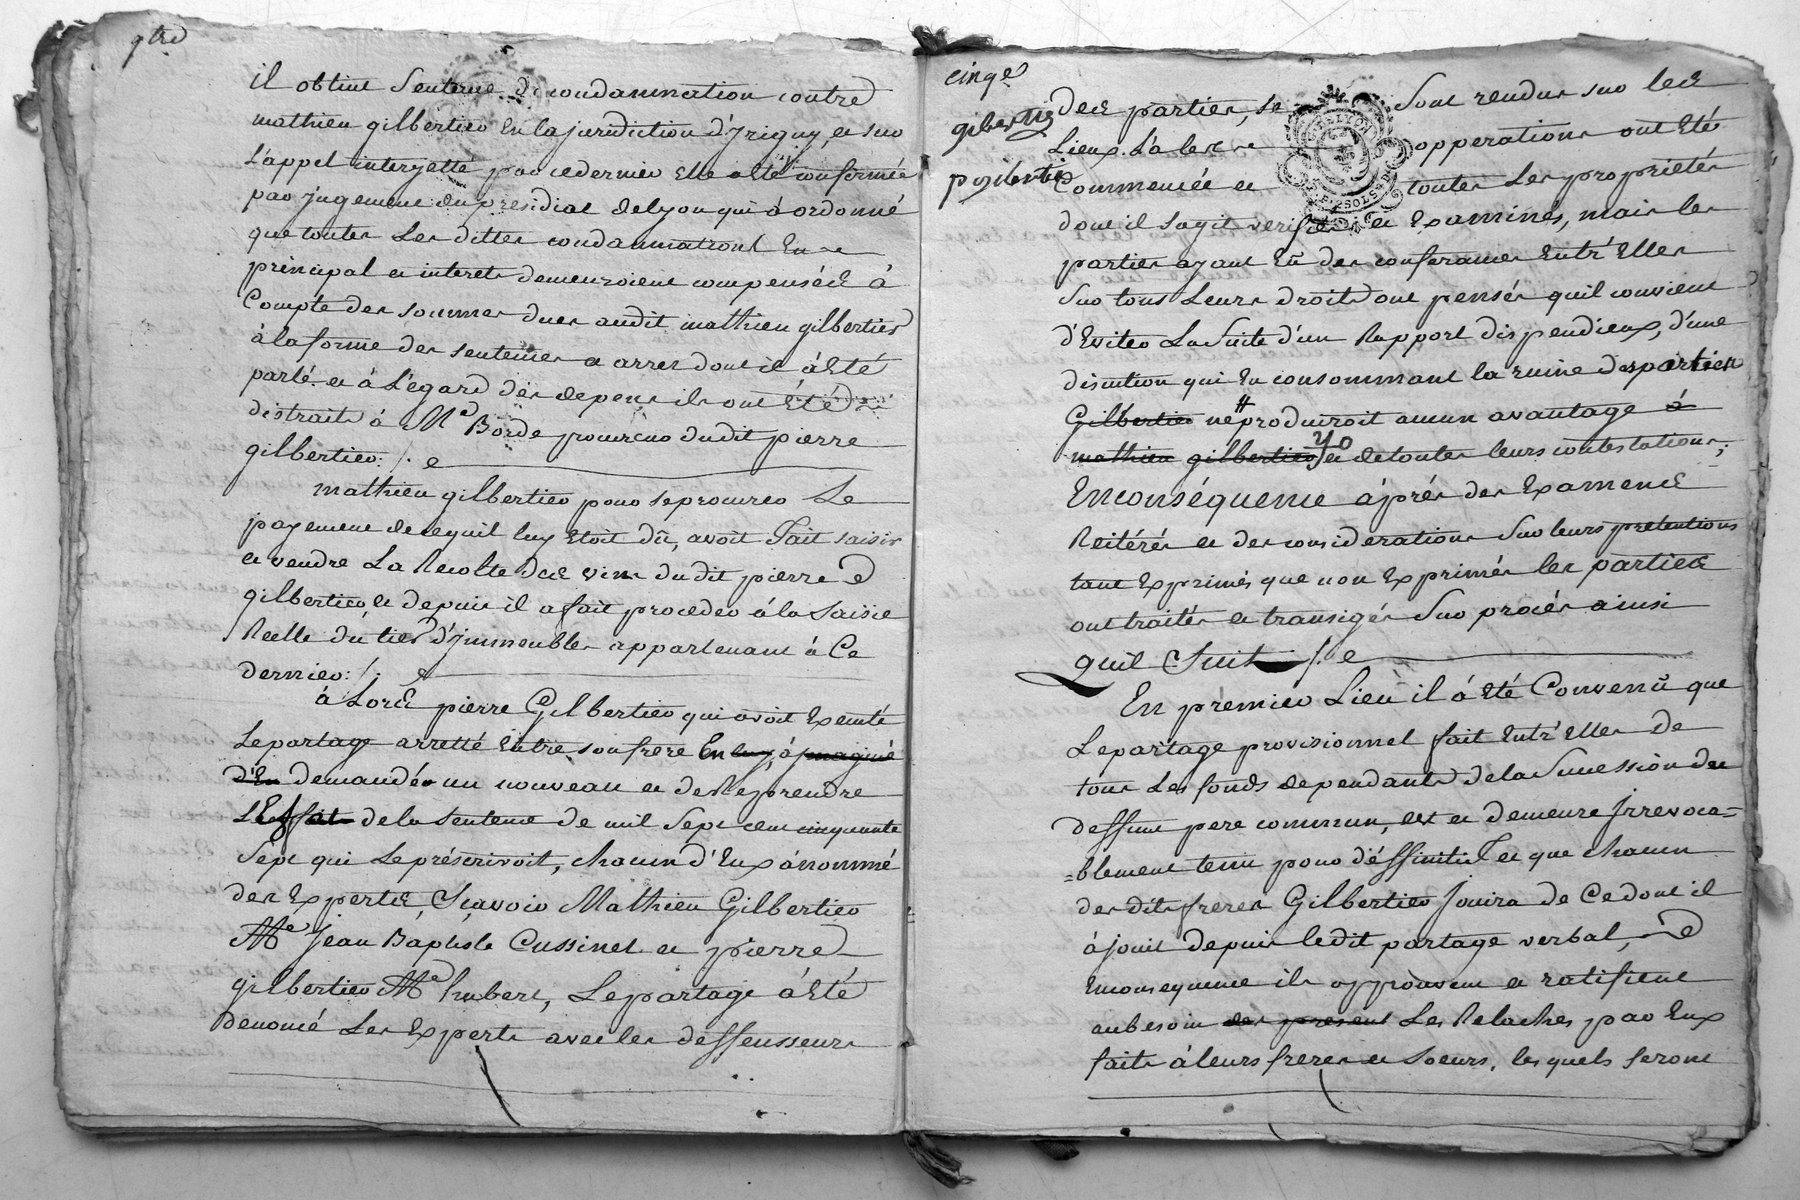 qtre
il obtint Sentence de condamnation contre
mathieu gilbertier en la jurisdiction d'Yrigny, et sur
l'appel interjetté par ce dernier elle a été confirmée
par jugement du presidial de lyon qui à ordonné
que toutes Les dittes condamnations En
principal et interets demeuroient compensées à
Compte des sommes dues audit mathieu gilbertier
à la forme des sentences et arrets dont il à été
parlé et à L'égard des depens ils ont été
distraits à Me Borde procureur dudit pierre
gilbertier ./.
mathieu gilbertier pour se procurer Le
payement de ce quil luy Etoit dû, avoit Fait saisir
et vendre La Recolte des vins du dit pierre
gilbertier, et depuis il a fait proceder à la Saisie
Réelle du tiers d'jmmeubles appartenant à Ce
dernier ./.
à Lors pierre Gilbertier qui avoit Executé
Le partage arretté Entre son frere En luy, à jmaginé
d'En demander un nouveau et de Reprendre
L'Effait de la Sentence de mil Sept cent cinquante
Sept qui Le préscrivoit, chacun d'Eux à nommé
des Experts, Sçavoir Mathieu Gilbertier
Me Jean Baptiste Cussinet et pierre
gilbertier Me hubert, Le partage à été
denoncé Les Experts avec les deffensseurs
cinqe
gilbertier
des parties, se Sont rendus sur les
Lieux Là les opperations ont Eté
Commencée et toutes Les proprietés
dont il sagit verifiés et Examinés, mais les
parties ayant Eû des conferances Entr'Elles
Sur tous Leurs droits ont pensés quil convient
d'Eviter La Suite d'un Rapport dispendieux, d'une
discution qui En consommant la ruine des parties
Gilbertier ne produiroit aucun avantage à
mathieu gilbertier et de toutes leurs contestations;
En conséquence àprés des Examens
Reitérés et des considerations Sur leurs pretentions
tant Exprimés que non Exprimés les parties
ont traités et transigés Sur procés ainsi
quil Suit ./.
En prémier Lieu il à été Convenû que
Le partage provisionnel fait Entr'Elles de
tous Les fonds dependants de la Succession du
deffunt pere commun, est et demeure Jrrevoca=
=blement tenu pour déffinitif et que chacun
des dits freres Gilbertier Jouira de Ce dont il
à jouit depuis ledit partage verbal,
En consequence ils approuvent et ratifient
au besoin des present Les Relaches par Eux
faits à leurs freres et Soeurs, lesquels seront